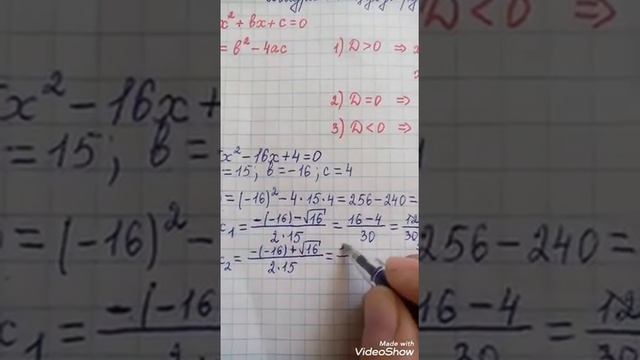 x² + bx + c = 0
= b² - 4ac
1) D > 0 ⇒
2) D = 0 ⇒
3) D < 0 ⇒
x² - 16x + 4 = 0
= 15; b = -16; c = 4
= (-16)² - 4 · 15 · 4 = 256 - 240 =
1 = -(-16) - √16 / 2 · 15 = 16 - 4 / 30 = 12 / 30
2 = -(-16) + √16 / 2 · 15 =
Made with
VideoShow